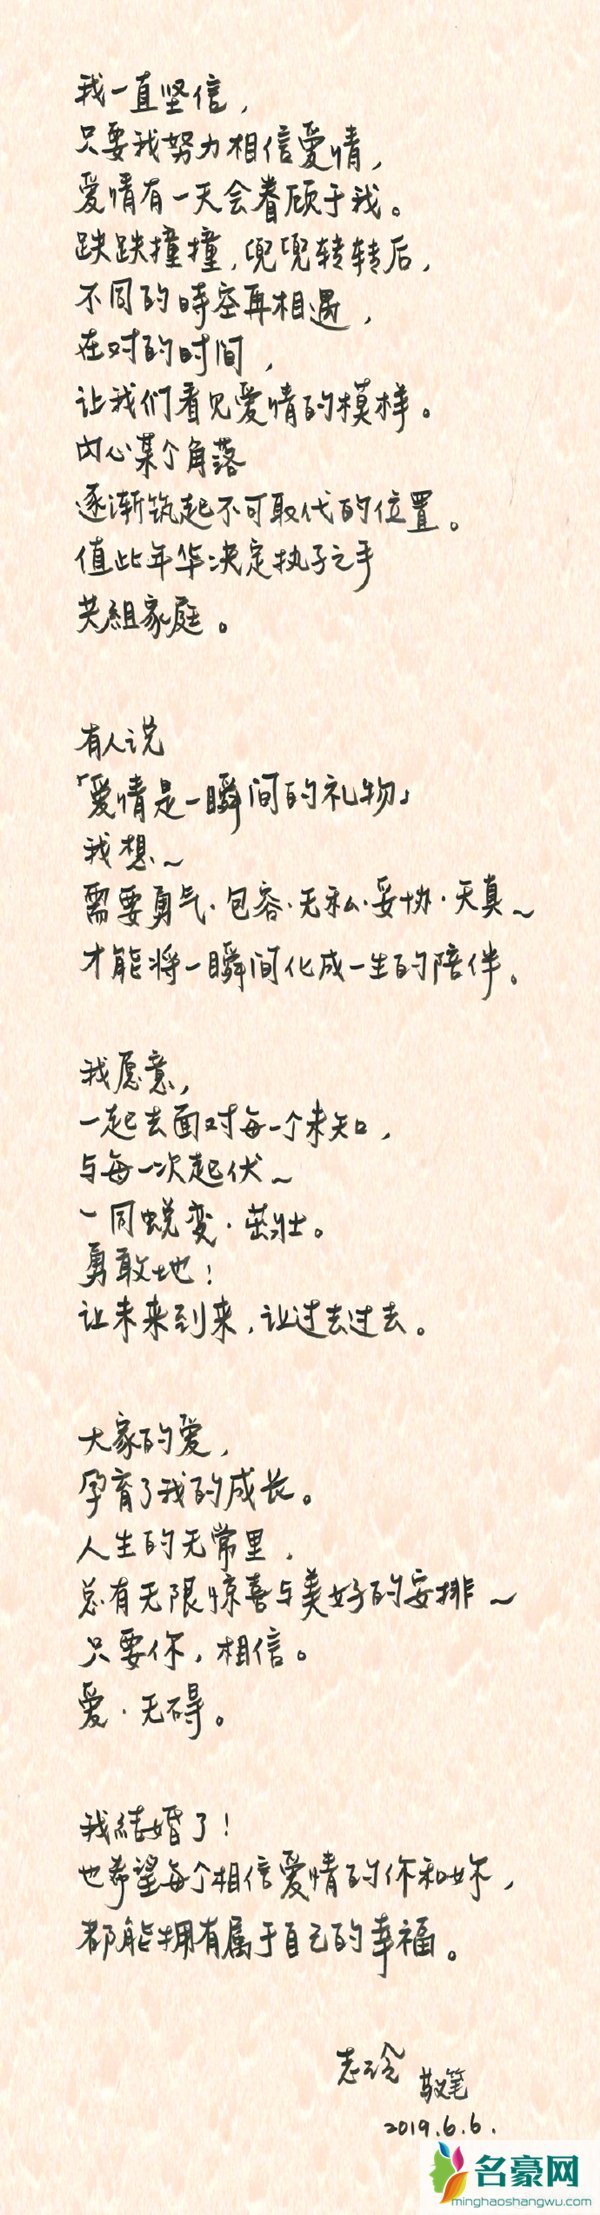 我一直坚信，
只要我努力相信爱情，
爱情有一天会眷顾于我。
跌跌撞撞，兜兜转转后，
不同的時空再相遇，
在对的时间，
让我们看见爱情的模样。
内心某个角落
逐渐筑起不可取代的位置。
值此年华决定执子之手
共組家庭。
有人说
「爱情是一瞬间的礼物」
我想~
需要勇气·包容·无私·妥协·天真~
才能将一瞬间化成一生的陪伴。
我愿意，
一起去面对每一个未知，
与每一次起伏~
一同蜕变·茁壮。
勇敢地！
让未来到来，让过去过去。
大家的爱，
孕育了我的成长。
人生的无常里，
总有无限惊喜与美好的安排~
只要你，相信。
爱·无碍。
我結婚了！
也希望每个相信爱情的你和妳，
都能拥有属于自己的幸福。
志玲 敬笔
2019.6.6.
名豪网
minghaoshangwu.com